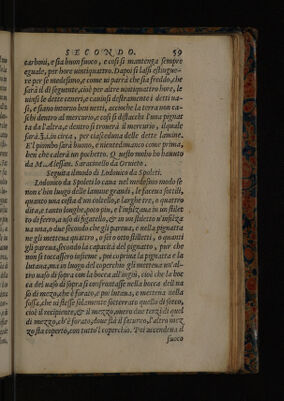 SECONDO. 59
carboni, e sia buon fuoco, e così si mantenga sempre
eguale, per hore uentiquattro. Dapoi si lassi estingue-
re per se medesimo, e come ui parrà che sia freddo, che
sarà il dì seguente, ciò per altre uentiquattro hore, le
uinsi le dette ceneri, e cauinsi destramente i detti ua-
si, e siano intorno ben netti, accioche la terra non ca-
schi dentro al mercurio, e così si distacche l'una pignat
ta da l'altra, e dentro si trouerà il mercurio, il quale
sarà in circa, per ciascheduna delle dette lamine.
E'l piombo sarà buono, e nientedimanco come prima,
ben che calerà un pochetto. Questo modo ho hauuto
da M. Alessan. Saracinello da Oruieto.
Seguita il modo di Lodouico da Spoleti.
Lodouico da Spoleto lo caua nel modesimo modo se
non è him luogo delle lamine grandi, le faceua sottili,
quanto una costa d'un coltello, e larghe tre, o quattro
dita, e tanto longhe, poco piu, e l'infilzaua in un stilet
to di ferro, a uso di figatello, & in un stiletto n'infilza
ua otto, o due secondo che gli pareua, e nella pignatta
ne gli metteua quattro, o sei o otto stilletti, o quanti
gli pareua, secondo la capacità del pignatto, pur che
non si toccassero insieme, poi copriua la pignatta e la
lutaua, ma in luogo del coperchio gli metteua un'al-
tro uaso di sopra con la bocca all'ingiù, cioè che la boc
ca del uaso di sopra si confrontasse nella bocca dell ua
so di mezo, che è forato, e poi lutaua, e metteua nella
fossa, che ui stesse solamente sotterrato quello di sotto,
cioè il recipiente, & il mezzo, uiero due terzi di quel
di mezzo, ch'è forato, doue stà il saturno, l'altro mez
zo sta coperto, con tutto'l coperchio. Poi accendeua il
fuoco